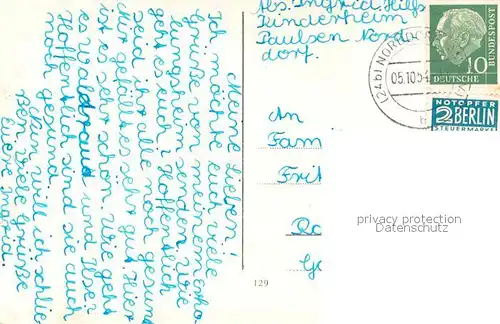 Meine Lieben!
Ich möchte euch viele
Grüße von meinem Erho-
lungsheim senden. Wie
geht es euch? Hoffentlich
seid ihr alle noch gesund.
Mir gefällt es gut. Hier
ist es sehr schön. Wie geht
es Waldraud und Ilse?
Hoffentlich sind sie auch
noch gesund.
Nun will ich schlie-
ßen viele Grüße
Eure
Abs. Ingrid Hilfs
Kinderheim
Paulsen Nord
dorf.
(24b) NORDDORF
05.10.54
DEUTSCHE
BUNDESPOST
10
NOTOPFER
2 BERLIN
STEUERMARKE
An
Fam
Frit
129
privacy protection
Datenschutz